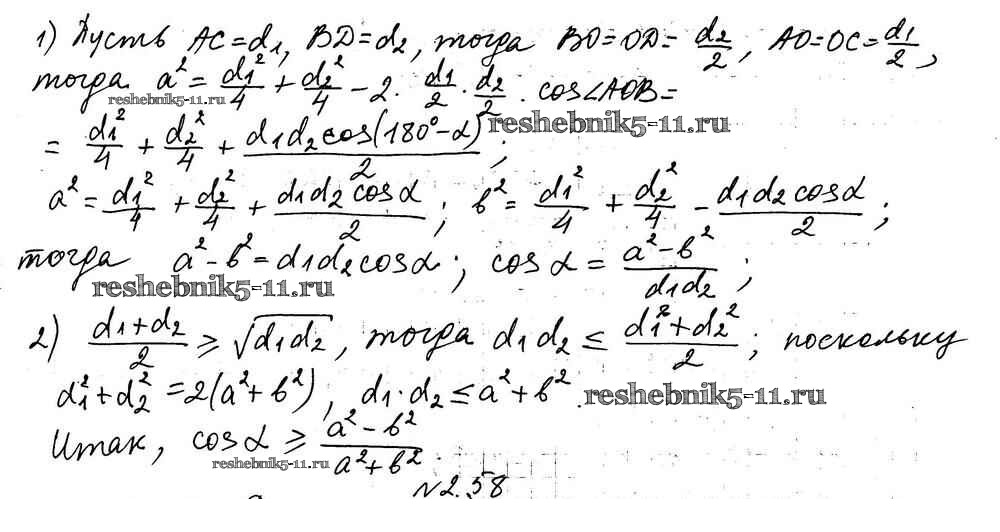 1) Пусть AC=d₁, BD=d₂, тогда BO=OD= d₂/2, AO=OC= d₁/2,
тогда a² = d₁²/4 + d₂²/4 - 2 · d₁/2 · d₂/2 · cos∠AOB =
reshebnik5-11.ru
= d₁²/4 + d₂²/4 + d₁d₂cos(180°-α)/2 ;
reshebnik5-11.ru
a² = d₁²/4 + d₂²/4 + d₁d₂cosα/2 ; b² = d₁²/4 + d₂²/4 - d₁d₂cosα/2 ;
тогда a²-b² = d₁d₂cosα ; cosα = a²-b²/d₁d₂ ;
reshebnik5-11.ru
2) d₁+d₂/2 ≥ √d₁d₂, тогда d₁d₂ ≤ d₁²+d₂²/2 ; поскольку
d₁²+d₂² = 2(a²+b²), d₁·d₂ ≤ a²+b².
reshebnik5-11.ru
Итак, cosα ≥ a²-b²/a²+b²
reshebnik5-11.ru
N2.58